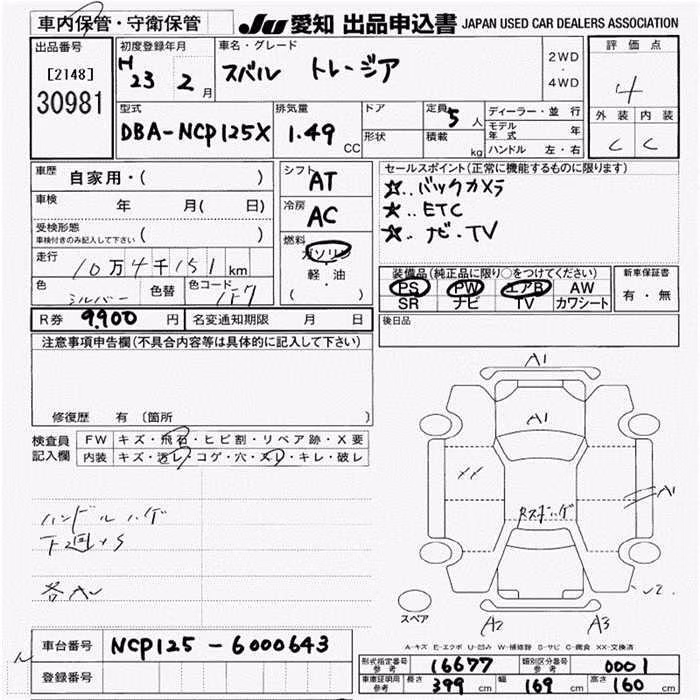 車内保管・守衛保管
JU 愛知 出品申込書 JAPAN USED CAR DEALERS ASSOCIATION
出品番号
[2148]
30981
初度登録年月
H 23 2 月
車名・グレード
スバル トレージア
2WD
・
4WD
評価点
4
外装 内装
C C
型式
DBA-NCP125X
排気量
1.49 CC
ドア
形状
定員 5 人
積載 kg
ディーラー・並 行
モデル年式 年
ハンドル 左・右
車歴 自家用・( )
車検 年 月( 日)
受検形態
車検付きのみ記入して下さい ( )
走行 10万4千151 km
色 シルバー 色替 色コード 1F7
R券 9,900 円 名変通知期限 月 日
シフト AT
冷房 AC
燃料 ガソリン
・
軽・油
( )
セールスポイント(正常に機能するものに限ります)
☆..バックカメラ
☆..ETC
☆..ナビ.TV
装備品(純正品に限り○をつけてください)
PS PW エアB AW
SR ナビ TV カワシート
新車保証書
有・無
後日品
注意事項申告欄(不具合内容等は具体的に記入して下さい)
修復歴 有 〔箇所
検査員記入欄
FW キズ・飛石・ヒビ割・リペア跡・X要
内装 キズ・汚レ・コゲ・穴・スレ・キレ・破レ
ハンドルハゲ
下回りS
各A
A1
A1
XX
A1
A2
A3
スペア
A-キズ E-エクボ U-凹み W-補修跡 S-サビ C-腐食 XX-交換済
車台番号 NCP125-6000643
登録番号
形式指定番号 参考 16677 類別区分番号 参考 0001
車庫証明用 参考 長さ 399 cm 幅 169 cm 高さ 160 cm